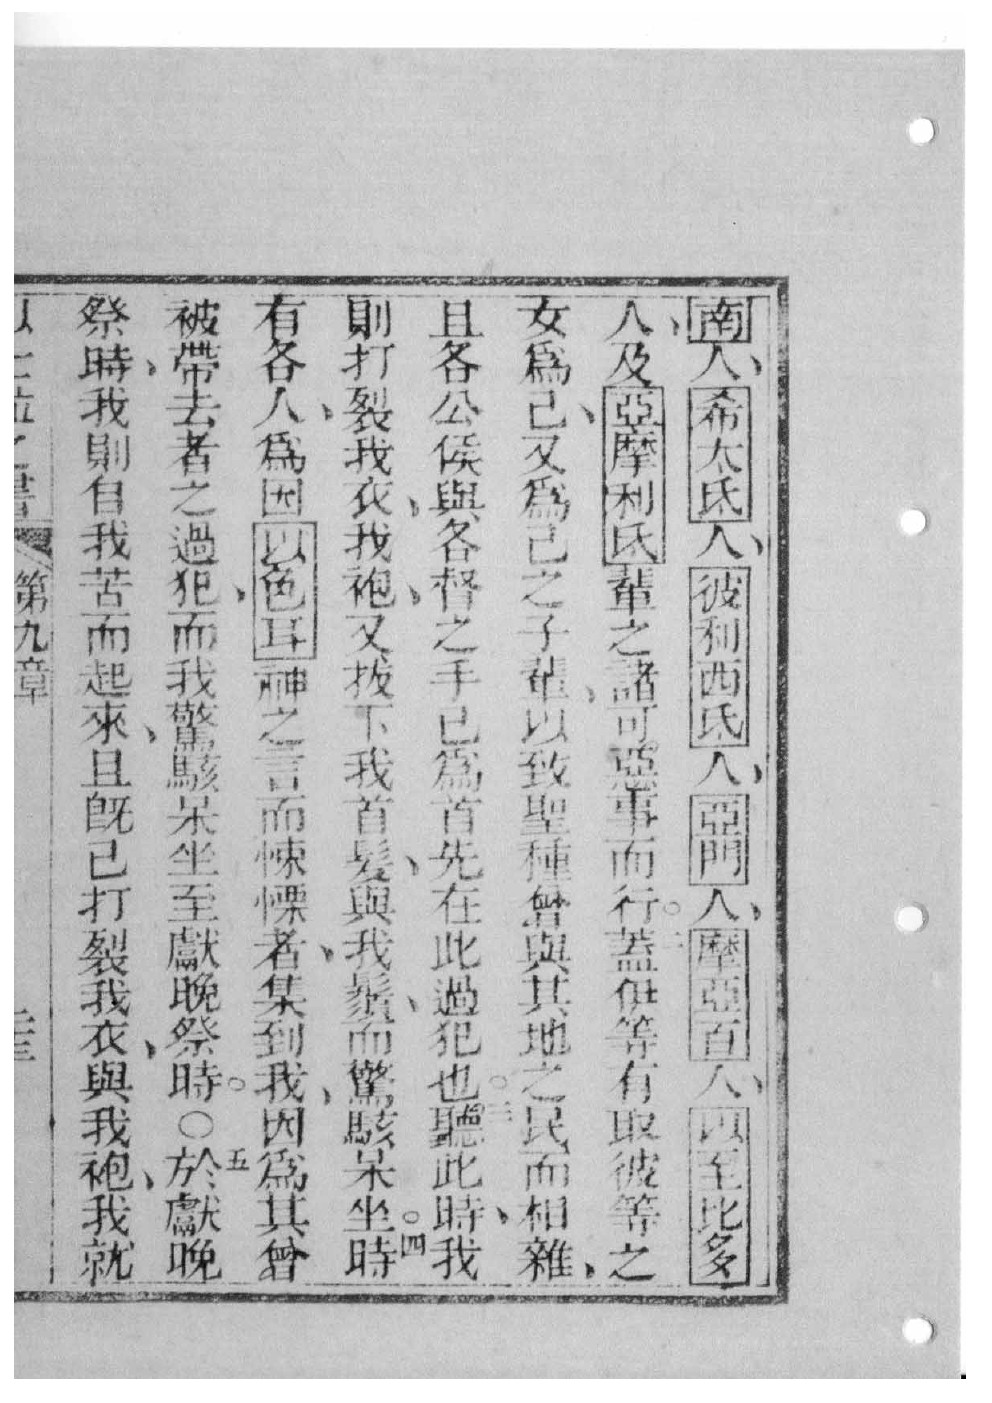 南人、希太氏人、彼利西氏人、亞門人、摩亞百人、以至比多
人、及亞摩利氏輩之諸可惡事而行。二蓋伊等有取彼等之
女爲己、又爲己之子輩、以致聖種曾與其地之民而相雜、
且各公侯與各督之手已爲首先在此過犯也。三聽此時、我
則打裂我衣、我袍、又拔下我首髮、與我鬚、而驚駭呆坐。四時
有各人、爲因以色耳神之言而悚慄者、集到我、因爲其曾
被帶去者之過犯、而我驚駭呆坐至獻晚祭時。○五於獻晚
祭時、我則自我苦而起來、且旣已打裂我衣、與我袍、我就
以士拉之書 第九章 二三